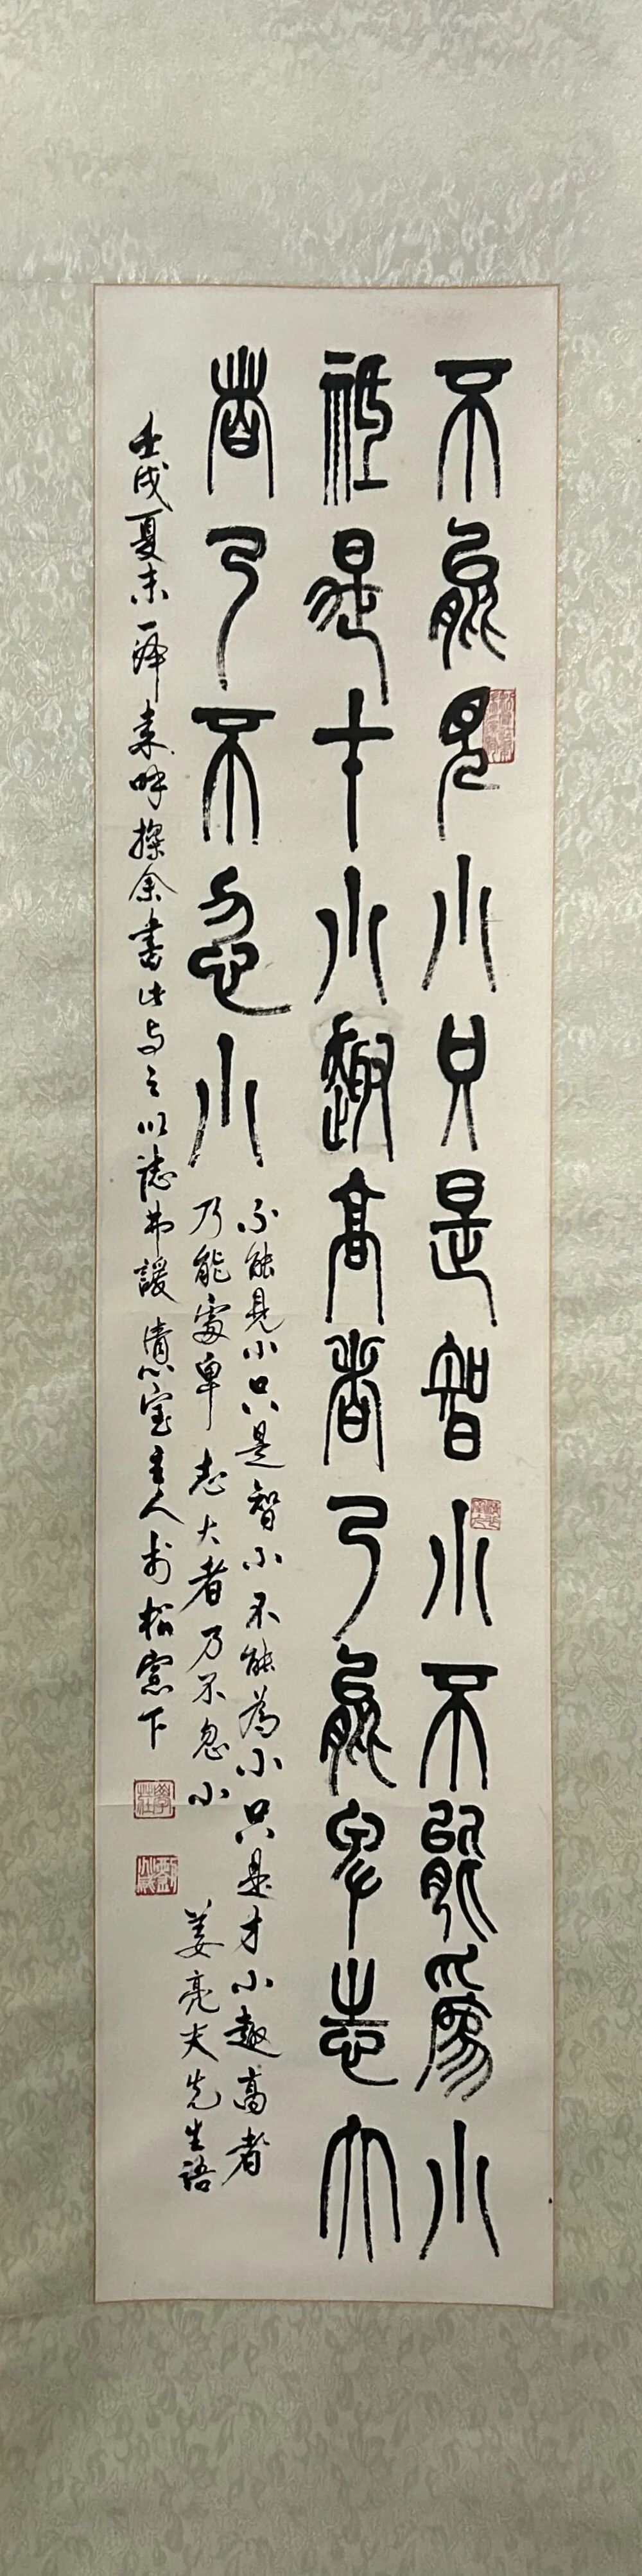 不能見小只是智小不能為小
祇是才小趣高者乃能卑志大
者乃不忽小
不能見小只是智小不能為小只是才小趣高者
乃能處卑志大者乃不忽小
姜亮夫先生語
壬戌夏末一萍來呼探余書此与之以誌弗諼清心室主人於松窗下